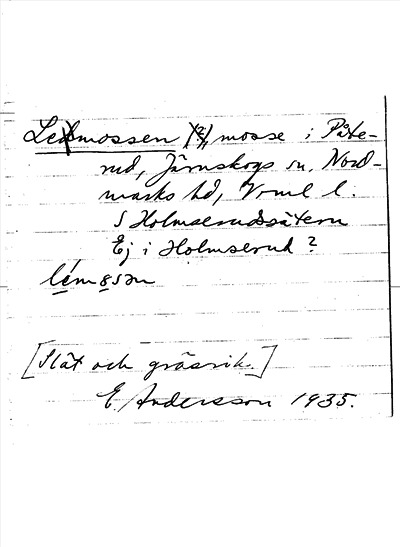 Lemossen (?), mosse i Påte-
rud, Järnskogs sn, Nord-
marks hd, Vrml l.
S Holmserudssätern
Ej i Holmserud?
lémosan
[Slät och gräsrik.]
E. Andersson 1935.